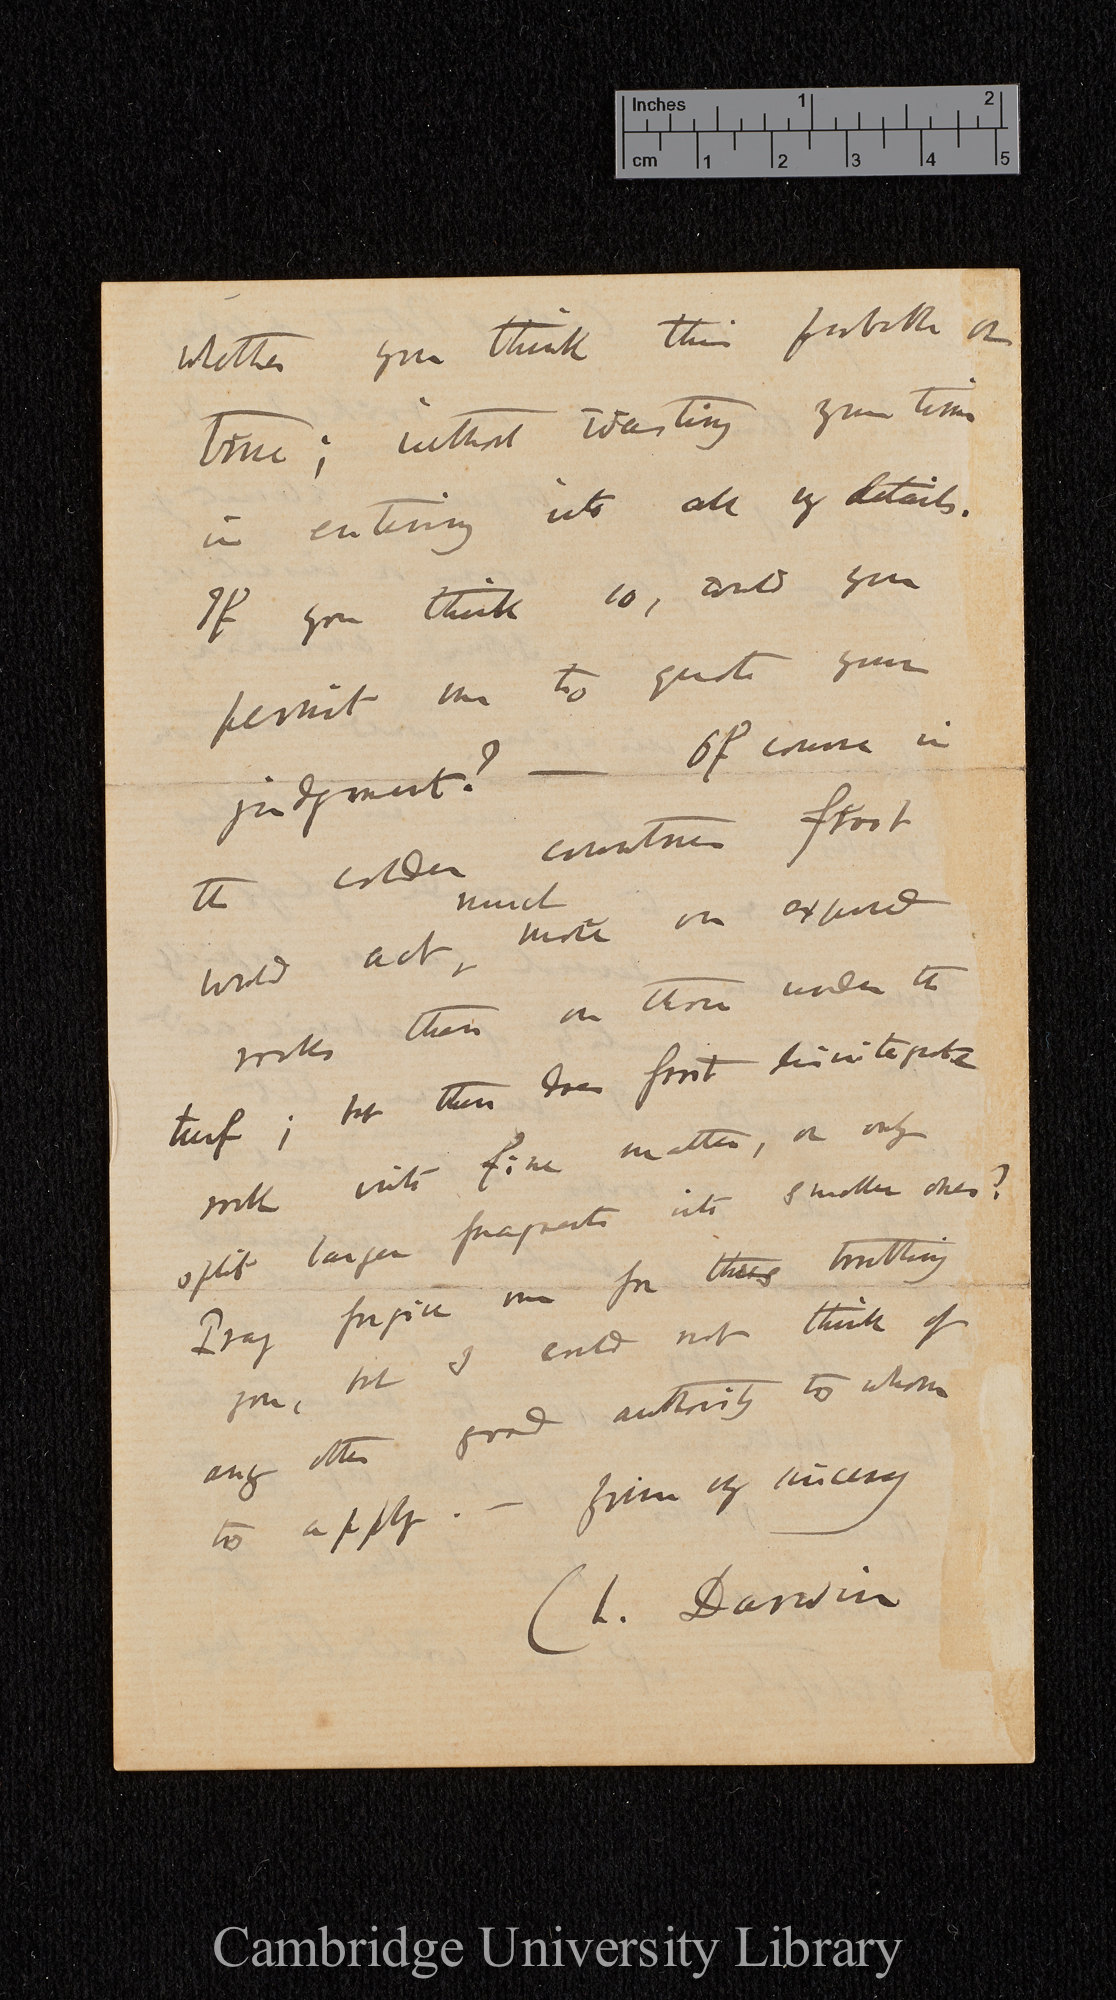 Inches 1 2
cm 1 2 3 4 5
whether you think this probable or
true; without wasting your time
in entering into all my details.
If you think so, could you
permit me to quote your
judgment? — Of course in
the colder countries frost
much
would act, more on exposed
rocks than on those under the
turf; but then does frost disintegrate
rock into fine matter, or only
split larger fragments into smaller ones?
Pray forgive me for thus troubling
you, but I could not think of
any other good authority to whom
to apply. — from my sincerely
Ch. Darwin
Cambridge University Library